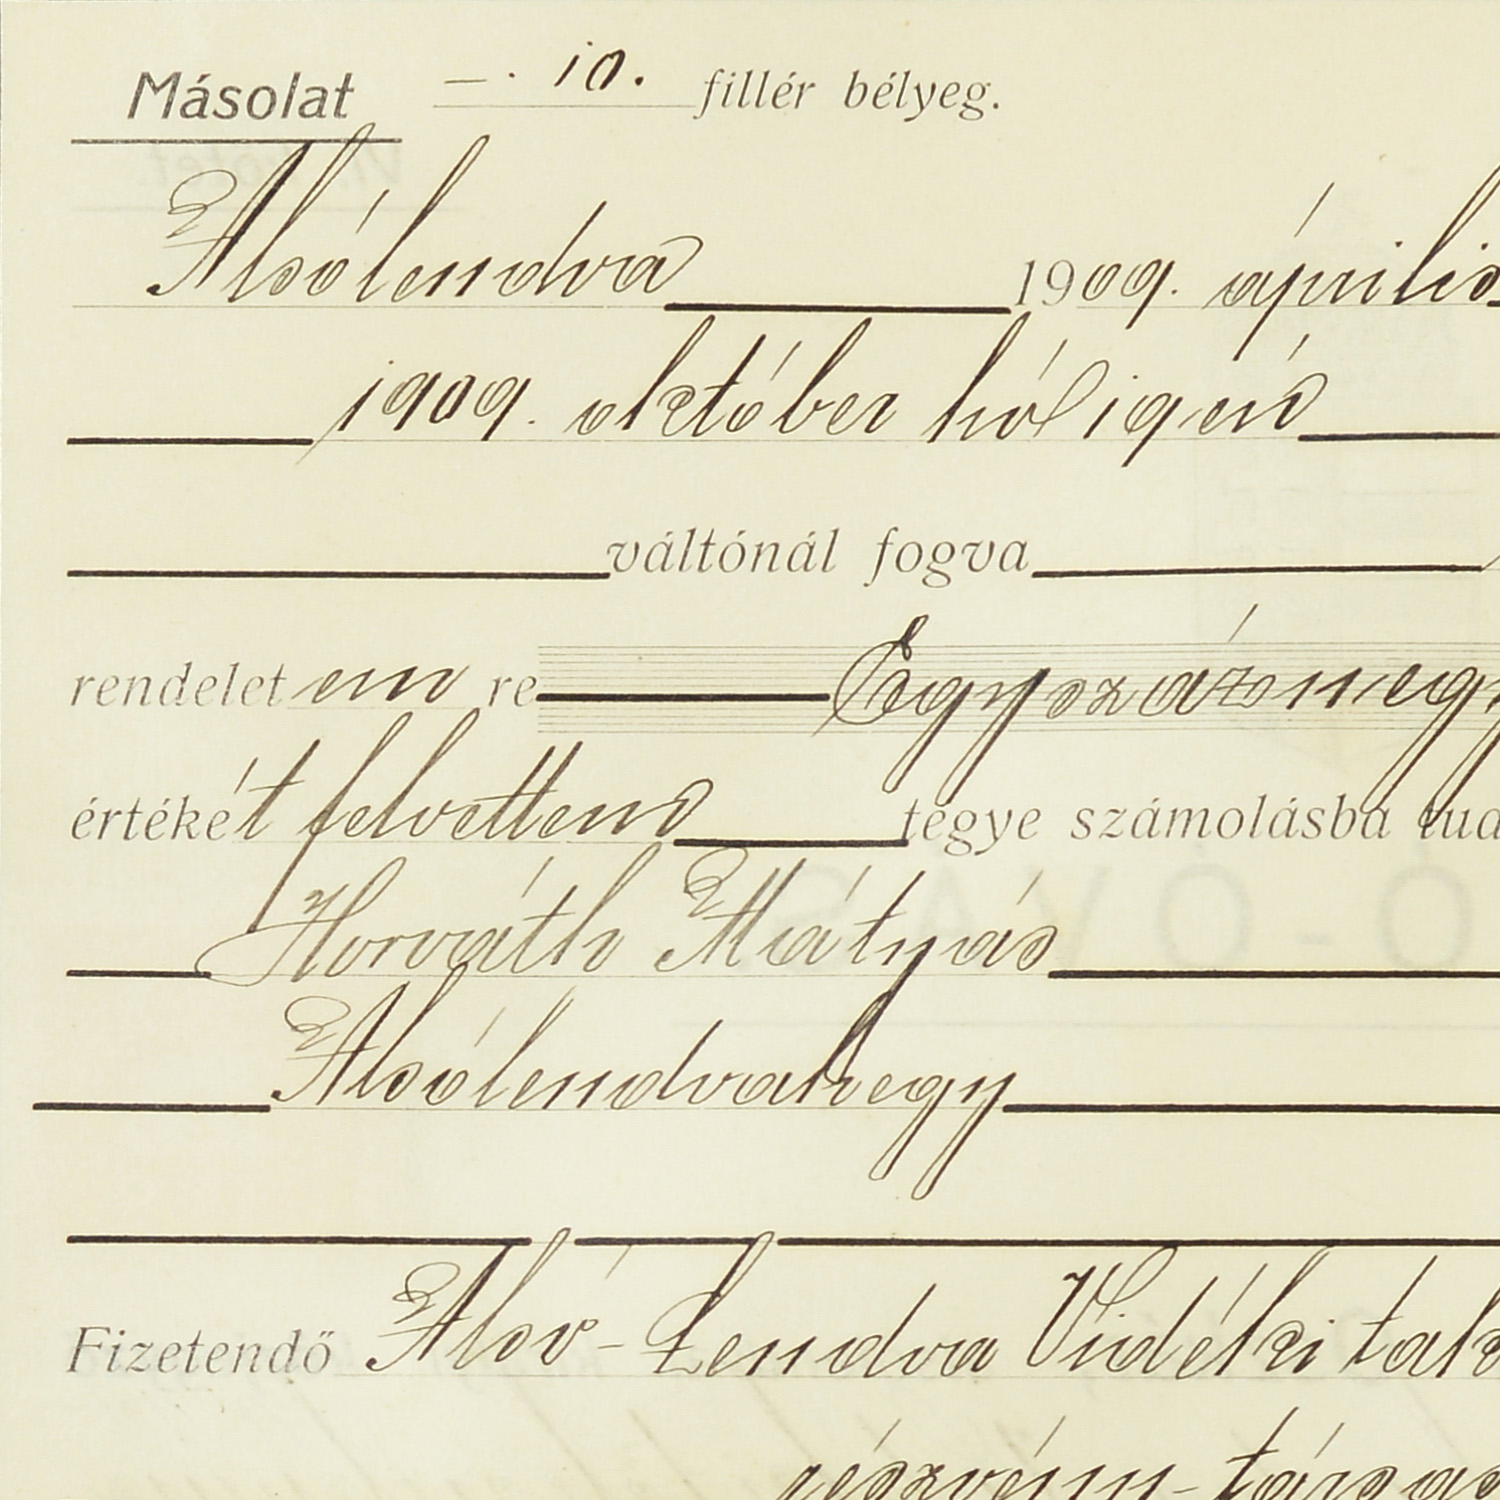 Másolat —. 10. fillér bélyeg.
Alsólendva 1909. április
1909. október hó 1 igen
váltónál fogva
rendelet em re Egyszáznegy
értékét felvettem tegye számolásba tud
Horváth Mátyás
Alsólendvahegy
Fizetendő Alsó-Lendva Vidéki tak
részvény-társas